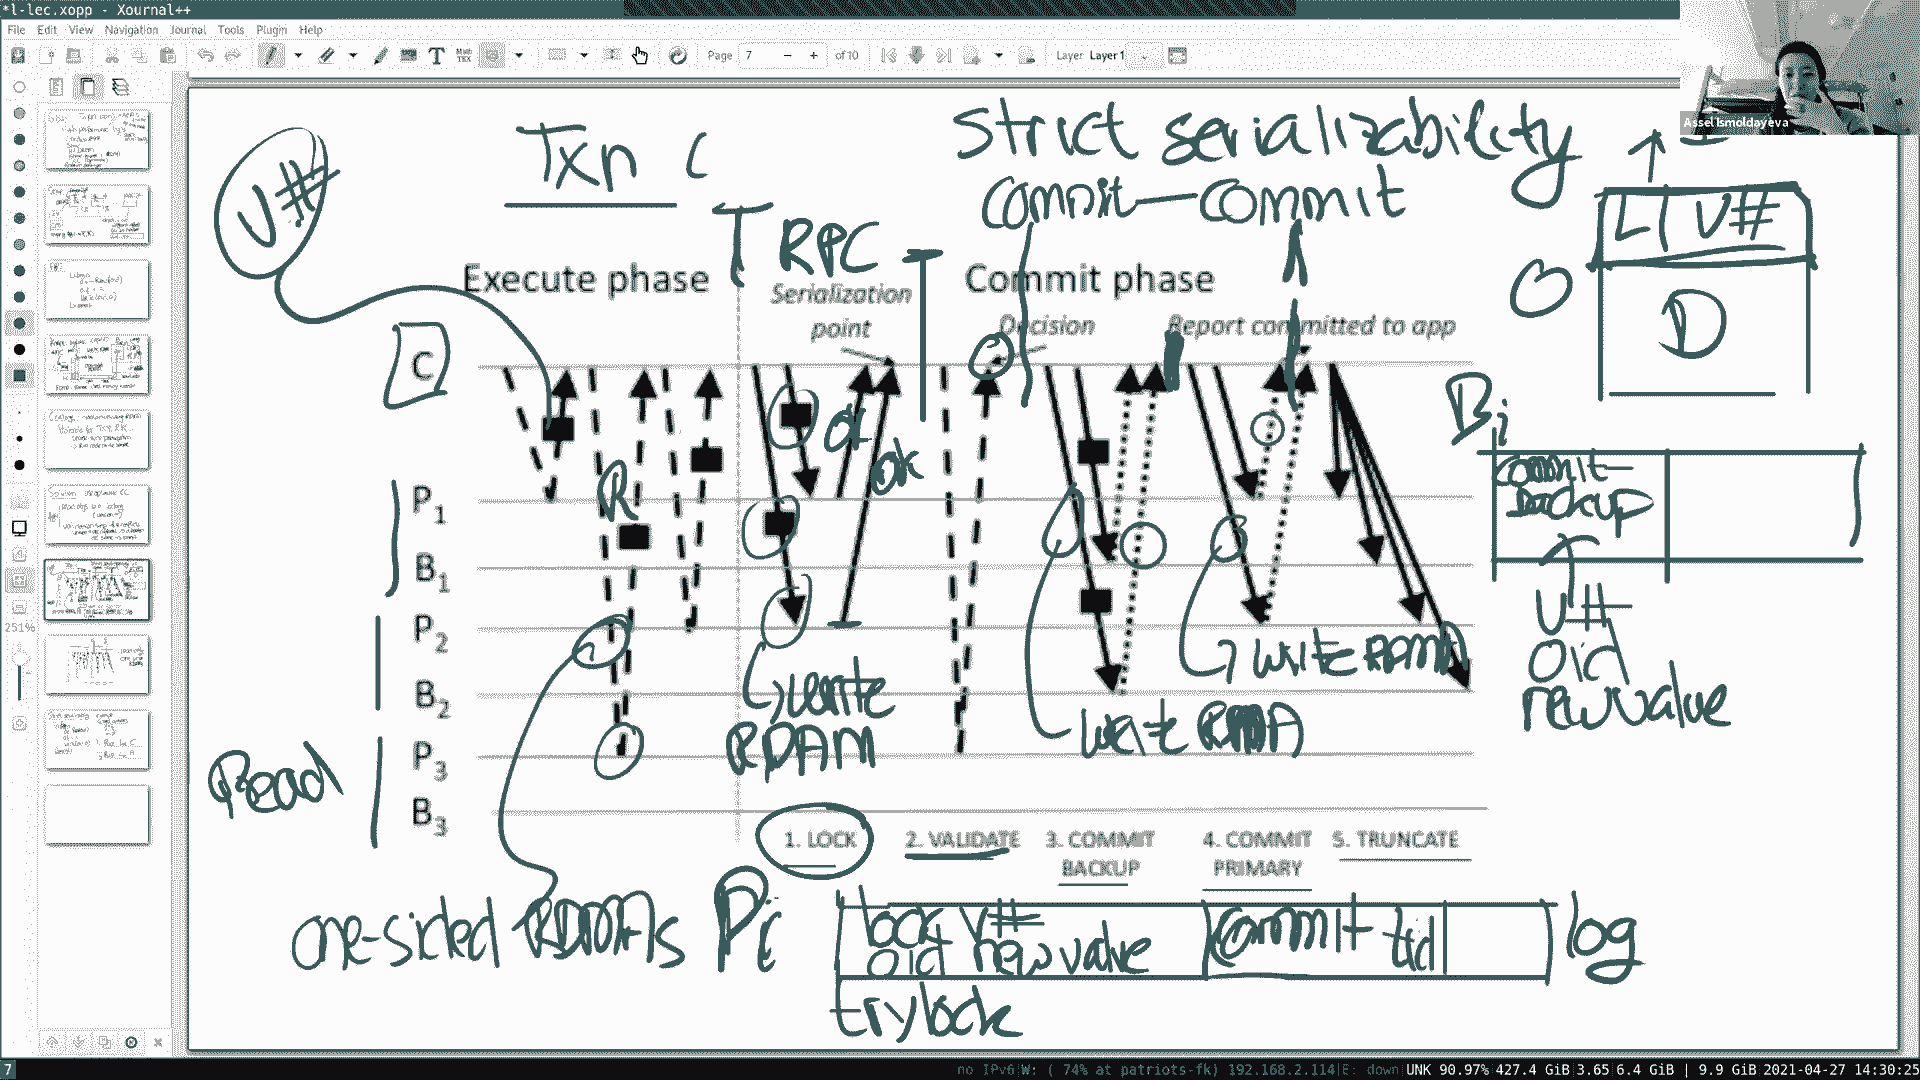 *l-lec.xopp - Xournal++
File Edit View Navigation Journal Tools Plugin Help
Page 7 - + of 10 Layer Layer 1
Assel Ismoldayeva
V#
Txn C
Strict serializability
commit — commit
RPC
L V#
O
D
Execute phase
Serialization
point
Commit phase
Decision
Report committed to app
C
ok
ok
R
P1
B1
P2
B2
P3
B3
Bi
commit-
backup
V#
Oid
new value
write
RDAM
write RDMA
write RDMA
Read
1. LOCK
2. VALIDATE
3. COMMIT
BACKUP
4. COMMIT
PRIMARY
5. TRUNCATE
one-sided RDMAs
Pi
lock V#
oid new value
commit tid
log
trylock
251%
7
no IPv6 W: ( 74% at patriots-fk) 192.168.2.114 E: down UNK 90.97% 427.4 GiB 3.65 6.4 GiB | 9.9 GiB 2021-04-27 14:30:25